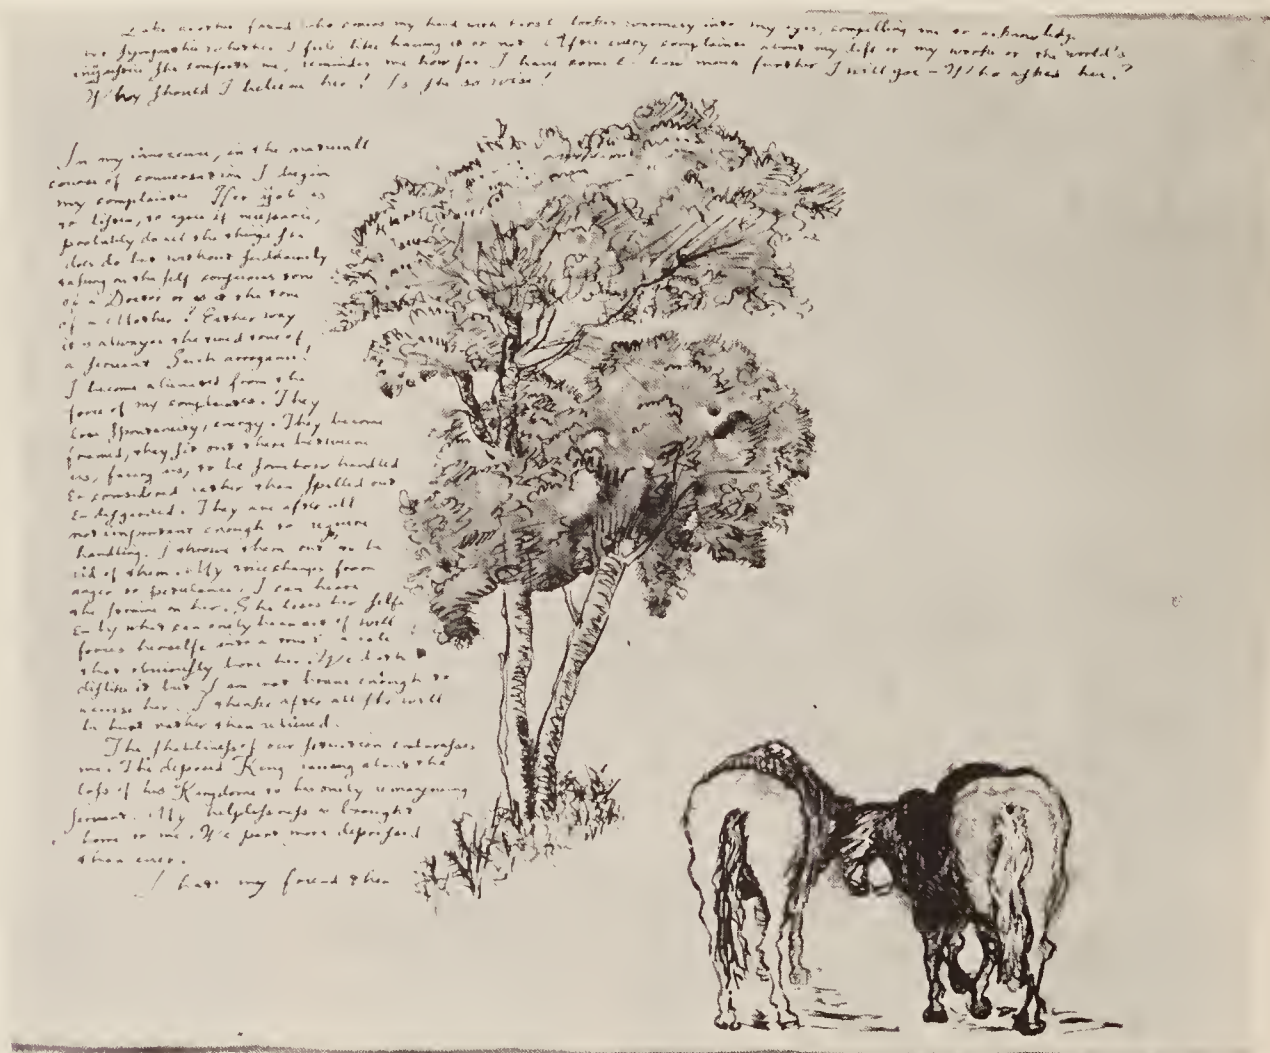 Like another friend who comes my hand with tears looks into my eyes, compelling me to acknowledge
her sympathie whether I feel like having it or not. After every complaint about my self or my work or the world's
injustice she comforts me, reminds me how far I have come & how much further I will goe – Who asked her?
Why should I believe her? Is she so wise?
In my innocence, in the naturall
course of conversation I begin
my complaints. Her job is
to listen, to agree if necessarie,
probably do all the things she
does do but without suddainly
taking on the self conscious tone
of a Doctor or is it the tone
of a Mother? Either way
it is alwayes the tired tone of
a servant. Such arrogance!
I become alienated from the
force of my complaints. They
lose spontaneity, energy. They become
framed, they sit out there between
us, facing us, to be somehow handled
& considered rather than spelled out
& disgarded. They are after all
not important enough to require
handling. I throw them out to be
rid of them. My voice changes from
anger to petulance. I can hear
the straine in her. She loses her selfe
& by what can onely be an act of will
forces herselfe into a role
that obviously bore her. We both
dislike it but I am not brave enough to
accuse her. I thinke after all she will
be hurt rather than relieved.
The shabbiness of our situation embarasses
me. The deposed King raving about the
loss of his Kingdome to his onely remayning
servant. My helplessness is brought
home to me. We part more depressed
than ever.
I hate my friend then